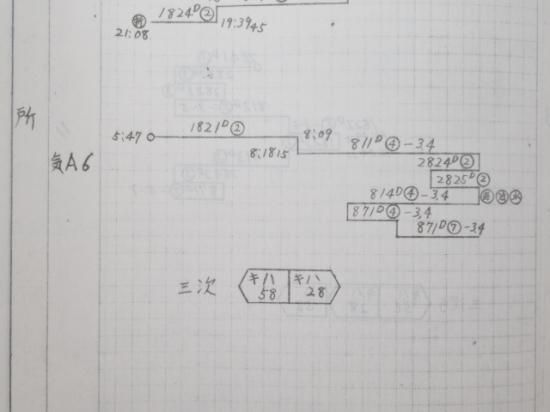 1824D②
21:08
19:3945
所
気A6
5:47
1821D②
8:09
8:1815
811D④-3.4
2824D②
2825D②
814D④-3.4
871D④-3,4
871D⑦-3.4
三次
キハ58
キハ28